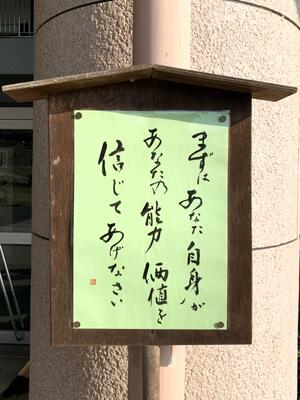 まずは あなた 自身が
あなたの 能力 価値を
信じて あげなさい